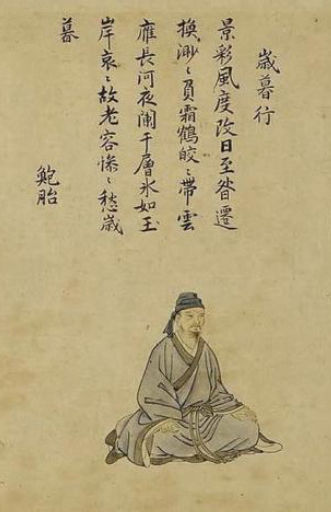 歳暮行
景彩風度改日至晷遷
換渺〻負霜鶴皎〻帶雲
鴈長河夜闌干層氷如玉
岸哀〻故老容慘〻愁歳
暮
鮑昭